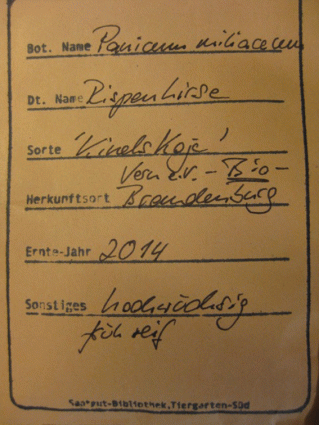 Bot. Name Panicum miliaceum
Dt. Name Rispenhirse
Sorte 'Kinelskoje'
Vern e.V. - Bio -
Herkunftsort Brandenburg
Ernte-Jahr 2014
Sonstiges hochwüchsig
früh reif
Saatgut-Bibliothek, Tiergarten-Süd